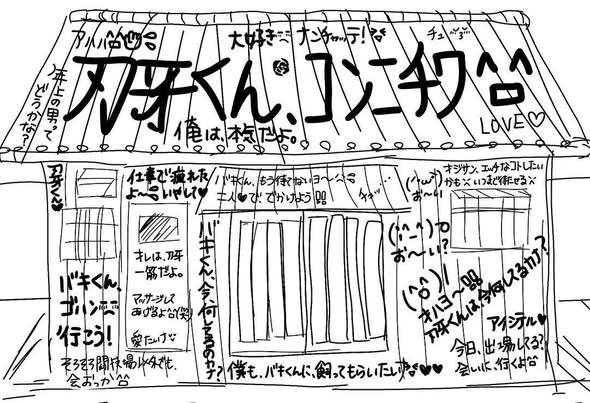 アハハ
大好き
ナンチャッテ!
チュッ
刃牙くん、コンニチワ^ロ^
年上の男って
どうかな?
俺は、本気だよ。
LOVE♡
刃牙くん♥
仕事で疲れた
よ〜
いやして♥
バキくん、もう待てないヨ〜
二人♥で、でかけよう
(^ω^)
お〜い
オジサン、エッチなコトしたい
かも
いつまで待たせる
オレは、刃牙
一筋だよ。
マッサージして
あげるよ(笑)
愛たいけ
バキくん、
ゴハン
行こう!
そろそろ闘技場以外でも、
会おっか^ロ^
バキくん、今、何してるのカナ?
お〜い?
オハヨ〜
刃牙くんは今何してるカナ?
アイシテル♥
今日、出場してる?
会いに、行くよ
僕も、バキくんに、飼ってもらいたい♥♥